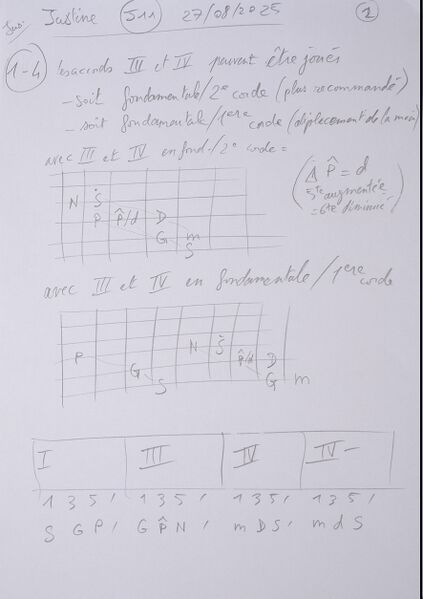 Justine J11 27/08/2025 2
1-4 les accords III et IV peuvent être joués
- soit fondamentale/2e corde (plus recommandé)
- soit fondamentale/1ere corde (déplacement de la main)
avec III et IV en fond./2e corde =
(⚠ P̂ = d
5te augmentée
= 6te diminuée)
N Ṡ
P P̂/d D
G m
S
avec III et IV en fondamentale/1ere corde
P G S N Ṡ P̂/d D
G m
I III IV IV-
1 3 5 / 1 3 5 / 1 3 5 / 1 3 5 /
S G P / G P̂ N / m D S / m d S